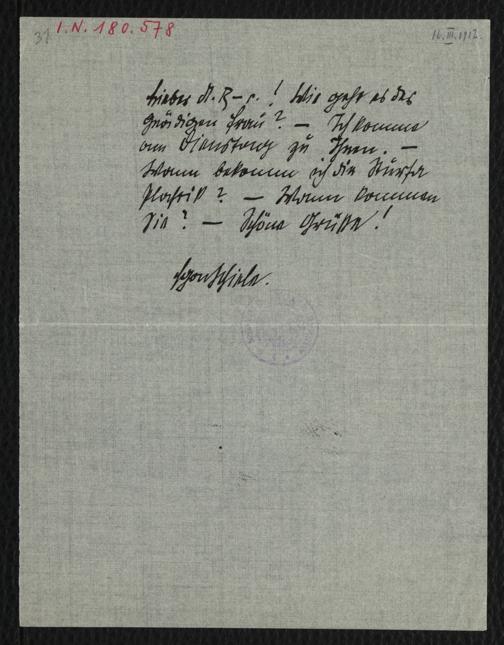 31
I.N. 180.578
16.III.1912.
Lieber A. R-r.! Wie geht es der
gnädigen Frau? — Ich komme
am Dienstag zu Ihnen. —
Wann bekomm ich die
Plastik? — Wann kommen
Sie? — Schöne Grüße!
Egon Schiele.